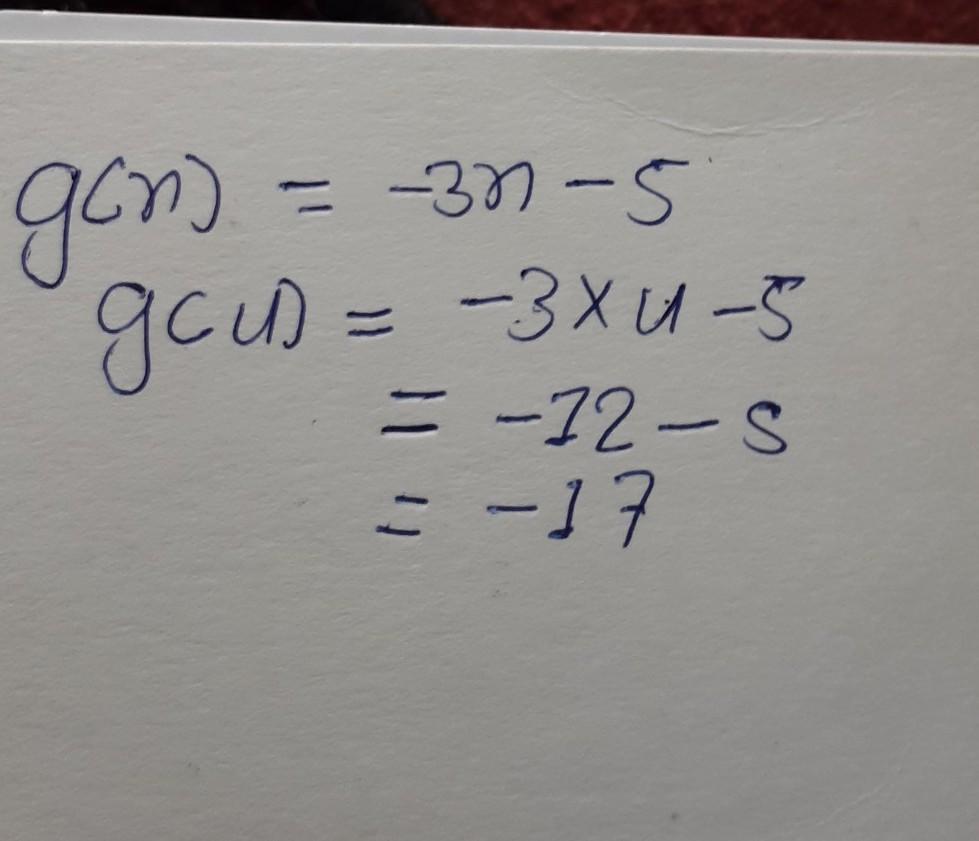 g(n) = -3n - 5
g(4) = -3 × 4 - 5
= -12 - 5
= -17